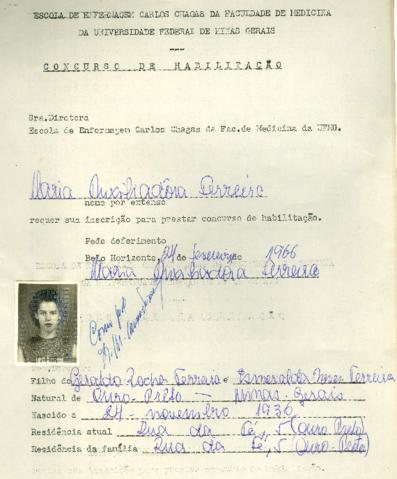 ESCOLA DE ENFERMAGEM CARLOS CHAGAS DA FACULDADE DE MEDICINA
DA UNIVERSIDADE FEDERAL DE MINAS GERAIS
CONCURSO DE HABILITAÇÃO
Sra.Diretora
Escola de Enfermagem Carlos Chagas da Fac.de Medicina da UFMG.
Maria Auxiliadôra Ferreira
nome por extenso
requer sua inscrição para prestar concurso de habilitação.
Pede deferimento
Belo Horizonte, 24 de fevereiro de 1966
Maria Auxiliadôra Ferreira
Filho de Geraldo Rocha Ferreira e Esmeralda Ferreira
Natural de Ouro-Prêto - Minas-Gerais
Nascido a 24 - novembro 1936
Residência atual Rua da Sé, 5 (Ouro Prêto)
Residência da família Rua da Sé, 5 (Ouro-Prêto)